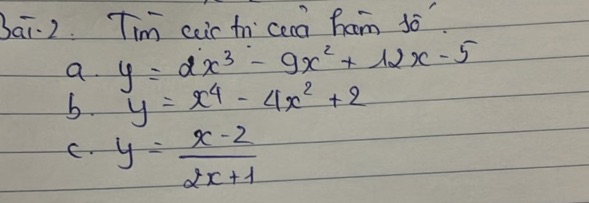 Bài 2. Tìm cực trị của hàm số.
a. y = 2x³ - 9x² + 12x - 5
b. y = x⁴ - 4x² + 2
c. y = (x - 2)/(2x + 1)